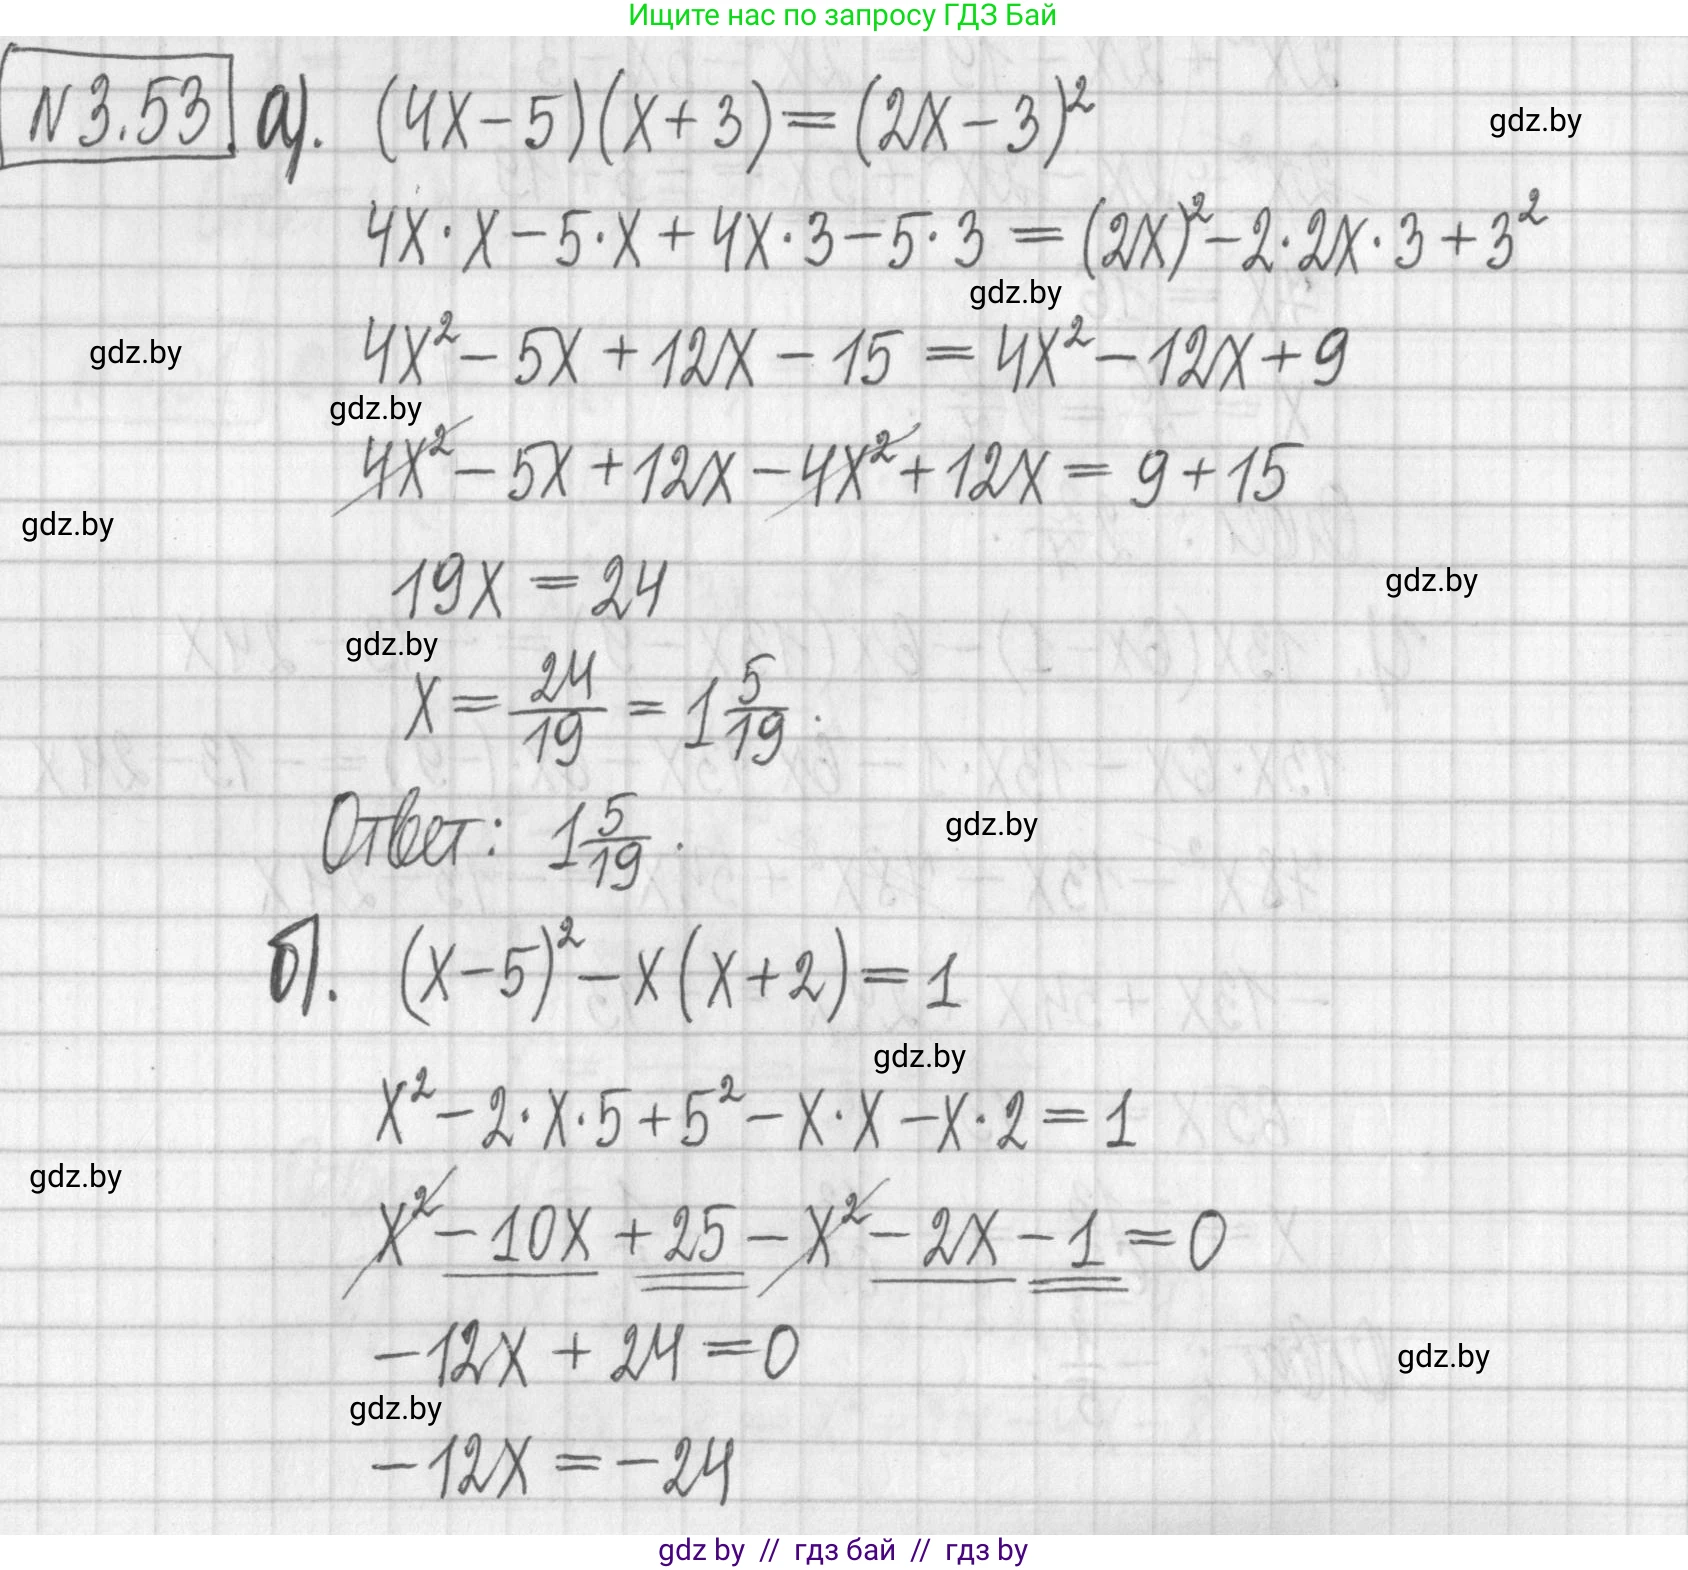 Ищите нас по запросу ГДЗ Бай
N 3.53. а). (4x-5)(x+3)=(2x-3)²
gdz.by
4x·x-5·x+4x·3-5·3=(2x)²-2·2x·3+3²
gdz.by
4x²-5x+12x-15=4x²-12x+9
gdz.by
gdz.by
4x²-5x+12x-4x²+12x=9+15
gdz.by
19x=24
gdz.by
gdz.by
x=24/19=1 5/19.
Ответ: 1 5/19.
gdz.by
б). (x-5)²-x(x+2)=1
gdz.by
x²-2·x·5+5²-x·x-x·2=1
gdz.by
x²-10x+25-x²-2x-1=0
-12x+24=0
gdz.by
gdz.by
-12x=-24
gdz by // гдз бай // гдз by